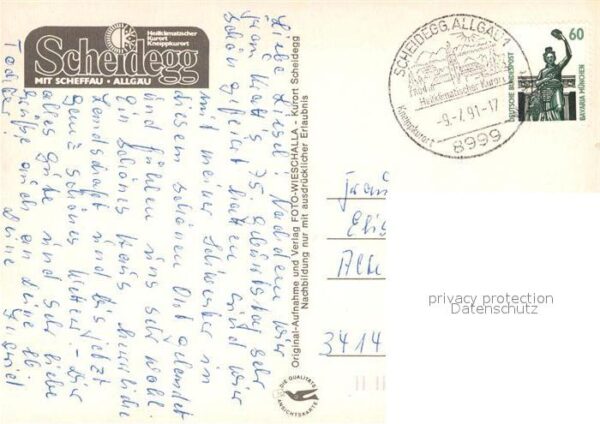 Heilklimatischer
Kurort
Kneippkurort
Scheidegg
MIT SCHEFFAU · ALLGÄU
Liebe Liesel! Nachdem wir
schön gefeiert hatten sind wir
mit meiner Schwester in
diesem schönen Ort gelandet
und fühlen uns sehr wohl.
Ein schönes Haus, herrliche
Landschaft und bis jetzt
ganz schönes Wetter - wir
alles gute und sehr liebe
Grüße auch an deine
Deine
Tochter!
Original-Aufnahme und Verlag FOTO-WIESCHALLA - Kurort Scheidegg
Nachbildung nur mit ausdrücklicher Erlaubnis
DIE QUALITÄTS
ANSICHTSKARTE
SCHEIDEGG, ALLGÄU 1
Heilklimatischer Kurort
Kneippkurort
-9.-7.91-17
8999
60
DEUTSCHE BUNDESPOST
BAVARIA MÜNCHEN
Frau
Elis
Alte
3414
privacy protection
Datenschutz